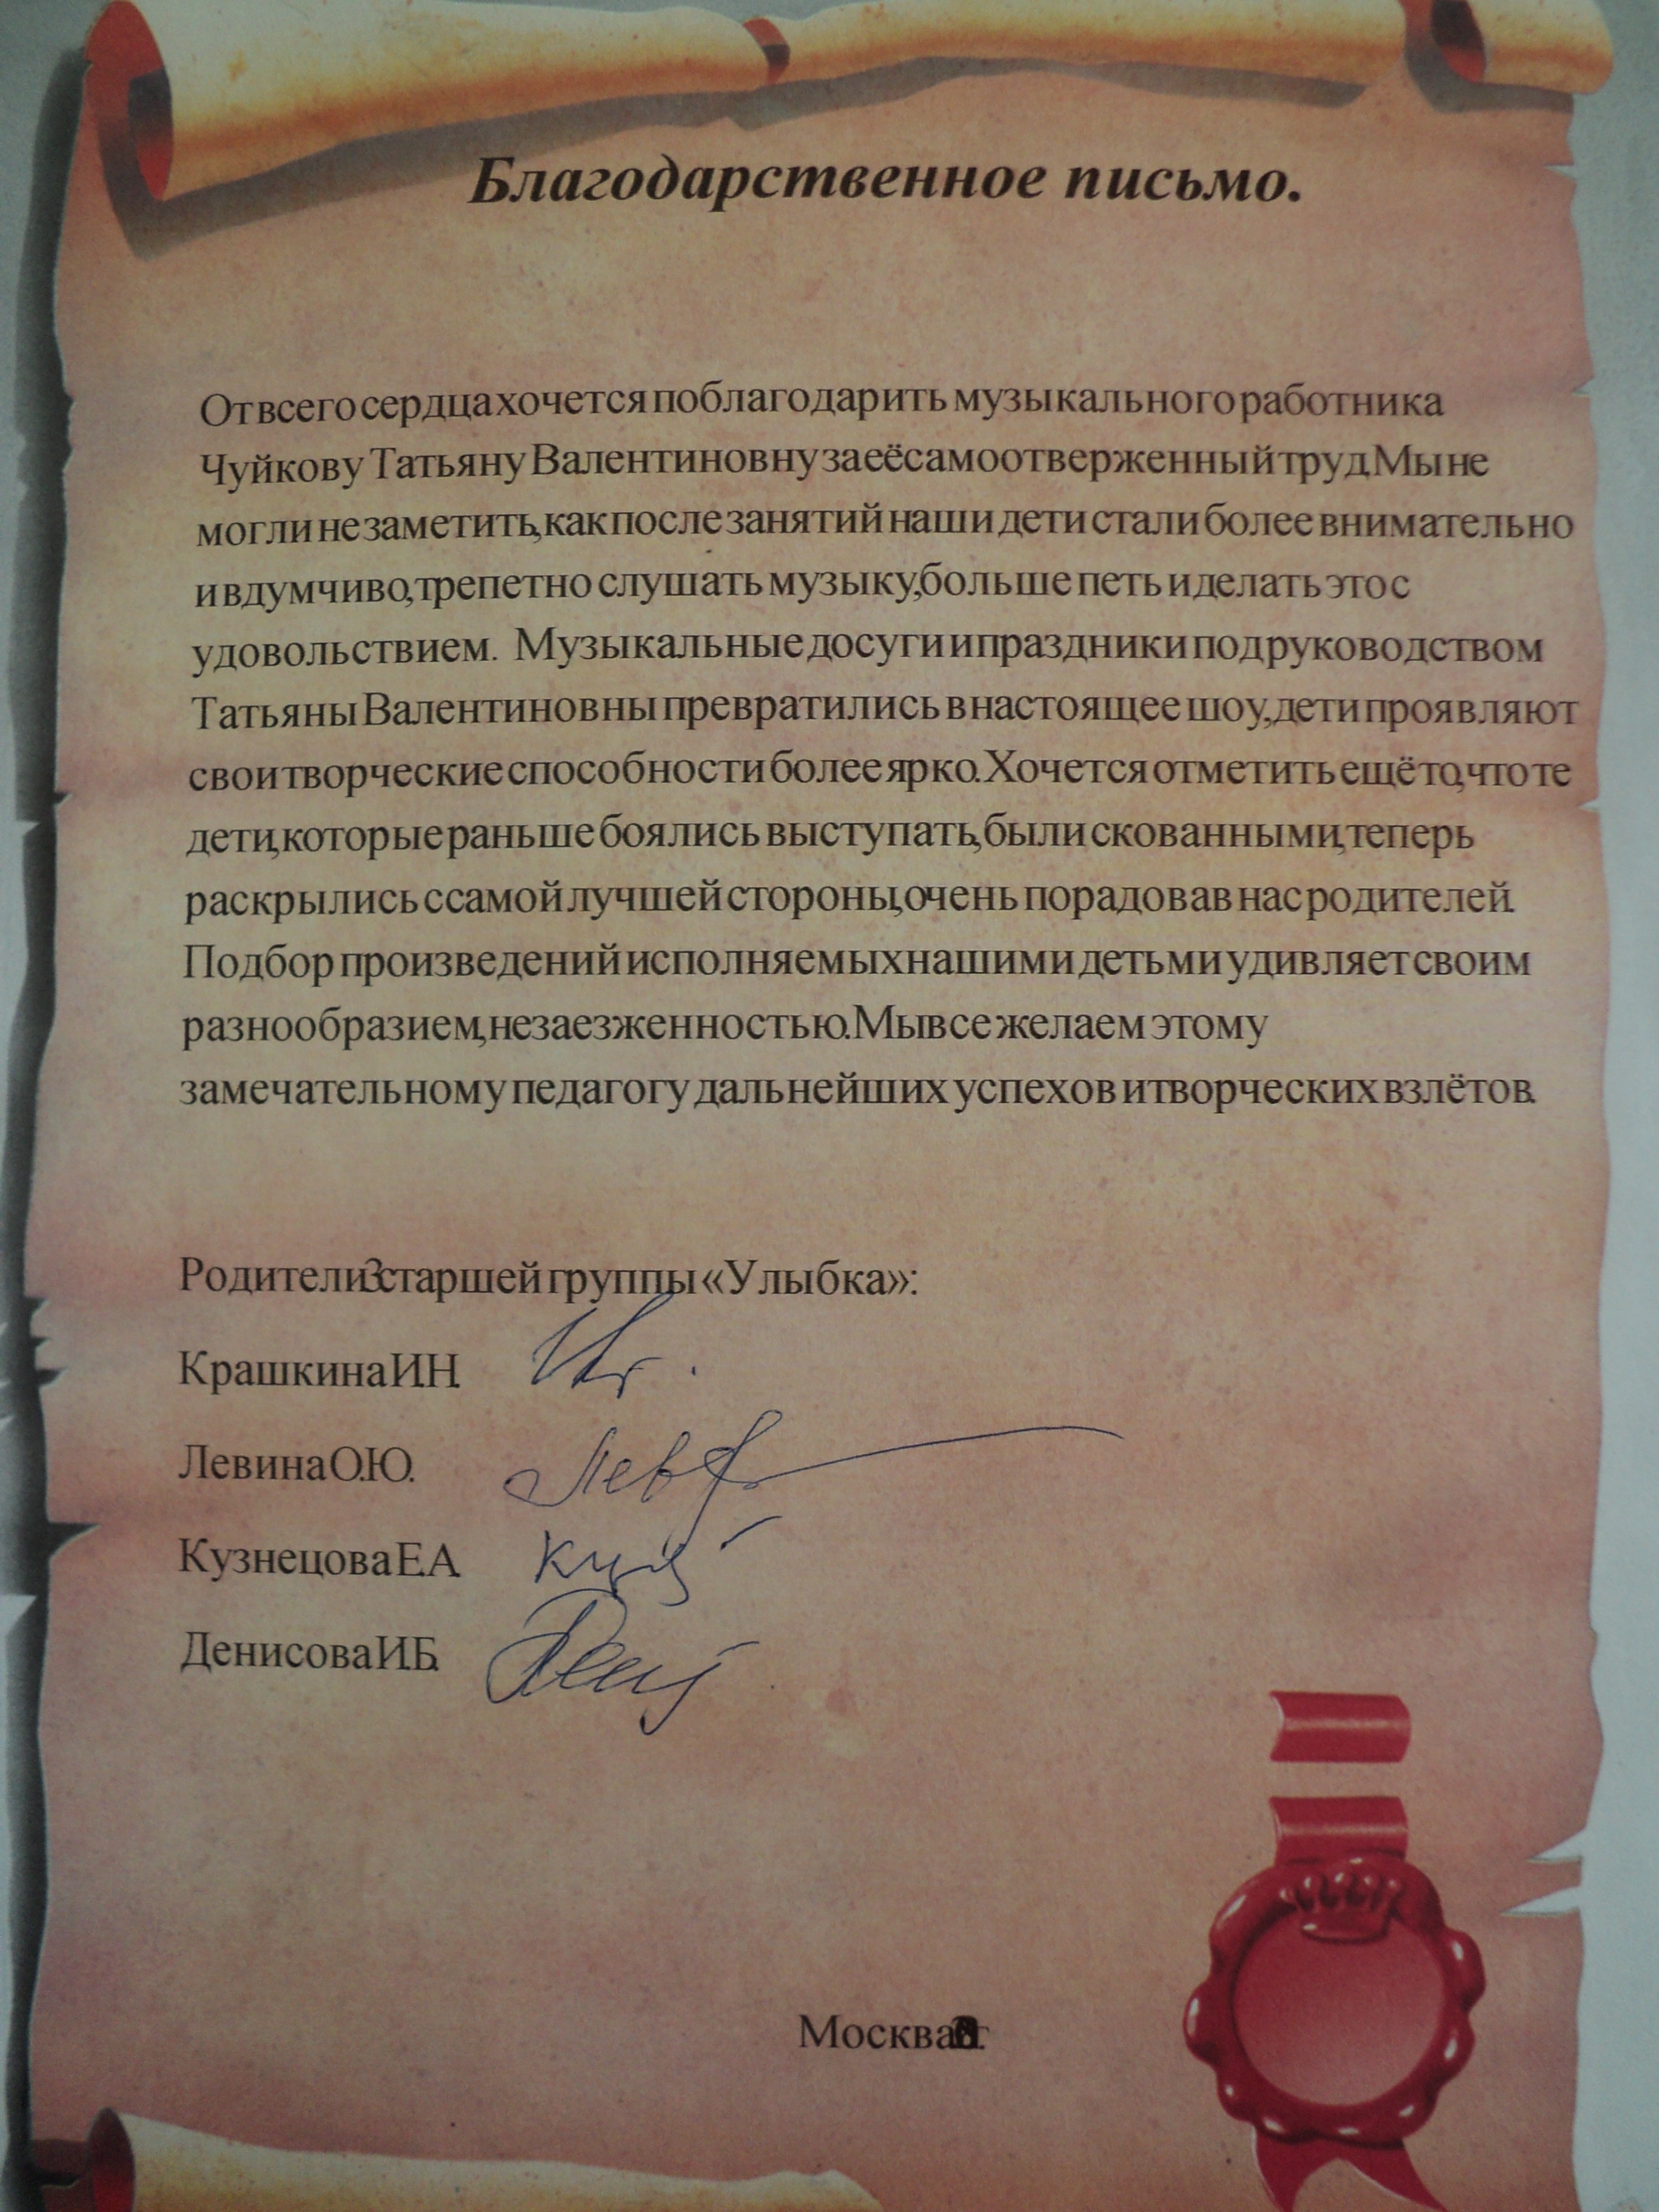 Благодарственное письмо.
От всего сердца хочется поблагодарить музыкального работника
Чуйкову Татьяну Валентиновну за её самоотверженный труд. Мы не
могли не заметить, как после занятий наши дети стали более внимательно
и вдумчиво, трепетно слушать музыку, больше петь и делать это с
удовольствием. Музыкальные досуги и праздники под руководством
Татьяны Валентиновны превратились в настоящее шоу, дети проявляют
свои творческие способности более ярко. Хочется отметить ещё то, что те
дети, которые раньше боялись выступать, были скованными, теперь
раскрылись с самой лучшей стороны, очень порадовав нас родителей.
Подбор произведений исполняемых нашими детьми удивляет своим
разнообразием, незаезженностью. Мы все желаем этому
замечательному педагогу дальнейших успехов и творческих взлётов.
Родители 3 старшей группы «Улыбка»:
Крашкина И.Н.
Левина О.Ю.
Кузнецова Е.А.
Денисова И.Б.
Москва г.